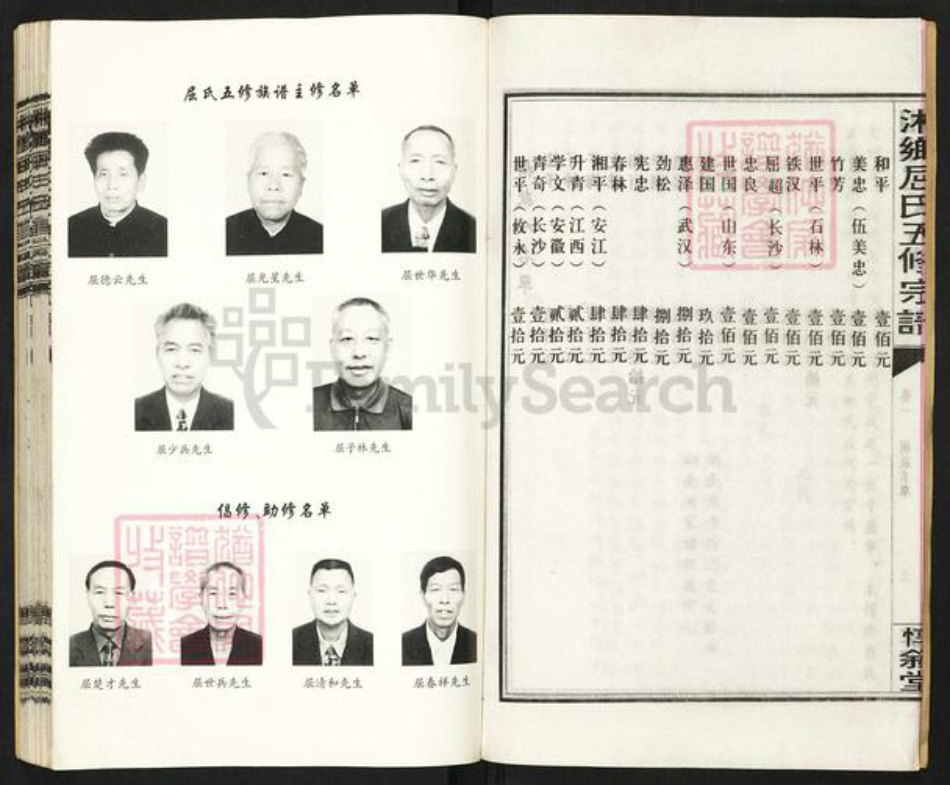 湘鄉屈氏五修宗譜
卷一
惇敘堂
和平 壹佰元
美忠（伍美忠） 壹佰元
竹芳 壹佰元
世平（石林） 壹佰元
铁汉 壹佰元
屈超（长沙） 壹佰元
忠良 壹佰元
世国（山东） 壹佰元
建国 玖拾元
惠泽（武汉） 捌拾元
劲松 捌拾元
宪忠 肆拾元
春林 肆拾元
湘平（安江） 肆拾元
升青（江西） 贰拾元
学文（安徽） 贰拾元
青奇（长沙） 壹拾元
世平（攸永） 壹拾元
屈氏五修族谱主修名单
屈德云先生 屈光星先生 屈世华先生
屈少兵先生 屈子林先生
倡修、助修名单
屈楚才先生 屈世兵先生 屈清和先生 屈春祥先生
FamilySearch